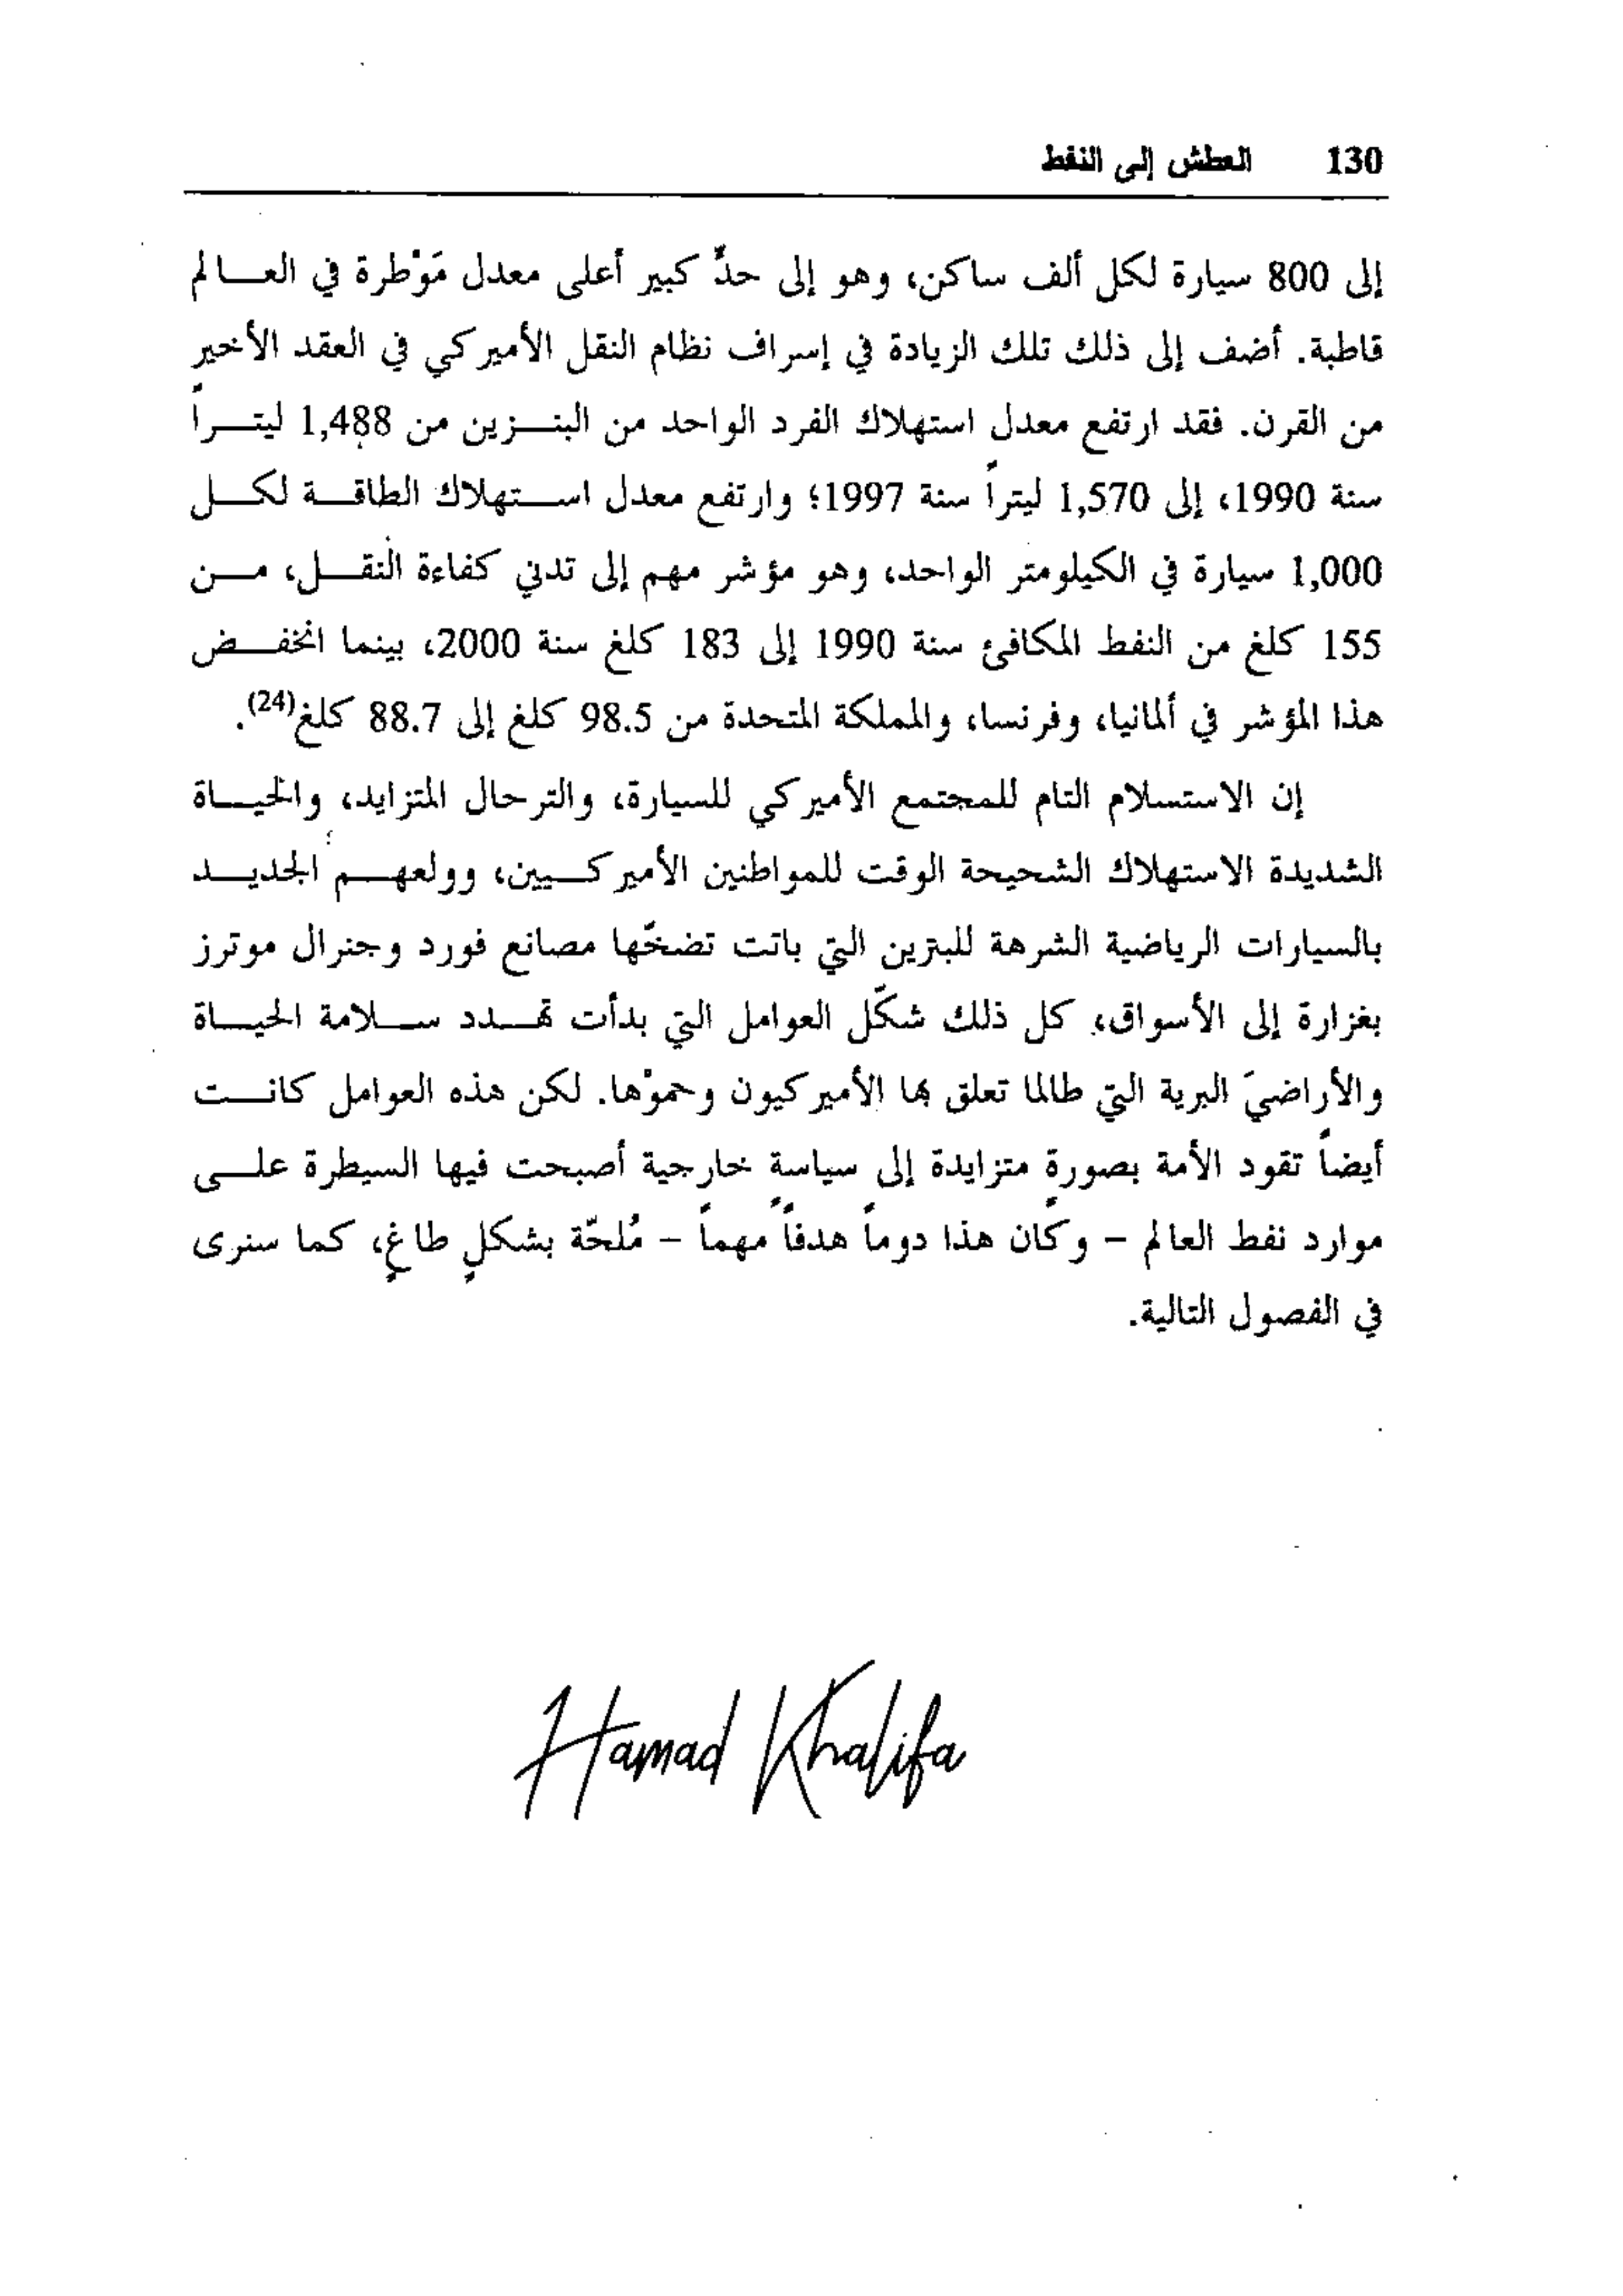 130 العطش إلى النفط
إلى 800 سيارة لكل ألف ساكن، وهو إلى حدٍّ كبير أعلى معدل مَوْطرة في العالم
قاطبة. أضف إلى ذلك تلك الزيادة في إسراف نظام النقل الأميركي في العقد الأخير
من القرن. فقد ارتفع معدل استهلاك الفرد الواحد من البنزين من 1,488 ليتراً
سنة 1990، إلى 1,570 ليتراً سنة 1997؛ وارتفع معدل استهلاك الطاقة لكل
1,000 سيارة في الكيلومتر الواحد، وهو مؤشر مهم إلى تدني كفاءة النقل، من
155 كلغ من النفط المكافئ سنة 1990 إلى 183 كلغ سنة 2000، بينما انخفض
هذا المؤشر في ألمانيا، وفرنسا، والمملكة المتحدة من 98.5 كلغ إلى 88.7 كلغ(24).
إن الاستسلام التام للمجتمع الأميركي للسيارة، والترحال المتزايد، والحياة
الشديدة الاستهلاك الشحيحة الوقت للمواطنين الأميركيين، وولعهم الجديد
بالسيارات الرياضية الشرهة للبنزين التي باتت تضخّها مصانع فورد وجنرال موترز
بغزارة إلى الأسواق، كل ذلك شكّل العوامل التي بدأت تهدد سلامة الحياة
والأراضيَ البرية التي طالما تعلق بها الأميركيون وحموْها. لكن هذه العوامل كانت
أيضاً تقود الأمة بصورةٍ متزايدة إلى سياسةٍ خارجية أصبحت فيها السيطرة على
موارد نفط العالم – وكان هذا دوماً هدفاً مهماً – مُلحّة بشكلٍ طاغٍ، كما سنرى
في الفصول التالية.
Hamad Khalifa